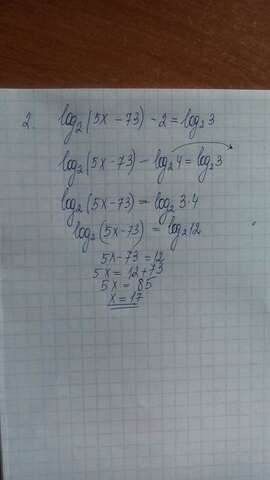 2. log₂(5x-73)-2=log₂3
log₂(5x-73)-log₂4=log₂3
log₂(5x-73)=log₂3·4
log₂(5x-73)=log₂12
5x-73=12
5x=12+73
5x=85
x=17